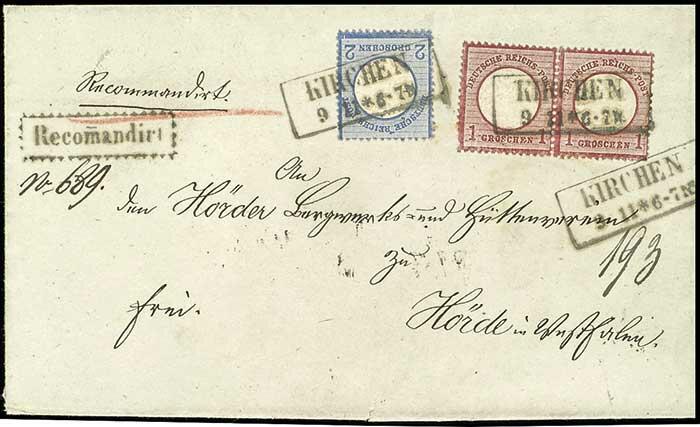 Recommandirt.
Recomandirt
No 689.
2 2
GROSCHEN
DEUTSCHE REICHS-POST
KIRCHEN
9 11 * 6-7N
DEUTSCHE REICHS-POST
1 GROSCHEN 1
DEUTSCHE REICHS-POST
1 GROSCHEN 1
KIRCHEN
9 11 * 6-7N
KIRCHEN
9 11 * 6-7N
An
den Hörder Bergwerks- und Hüttenverein
zu
193
frei.
Hörde in Westfalen.